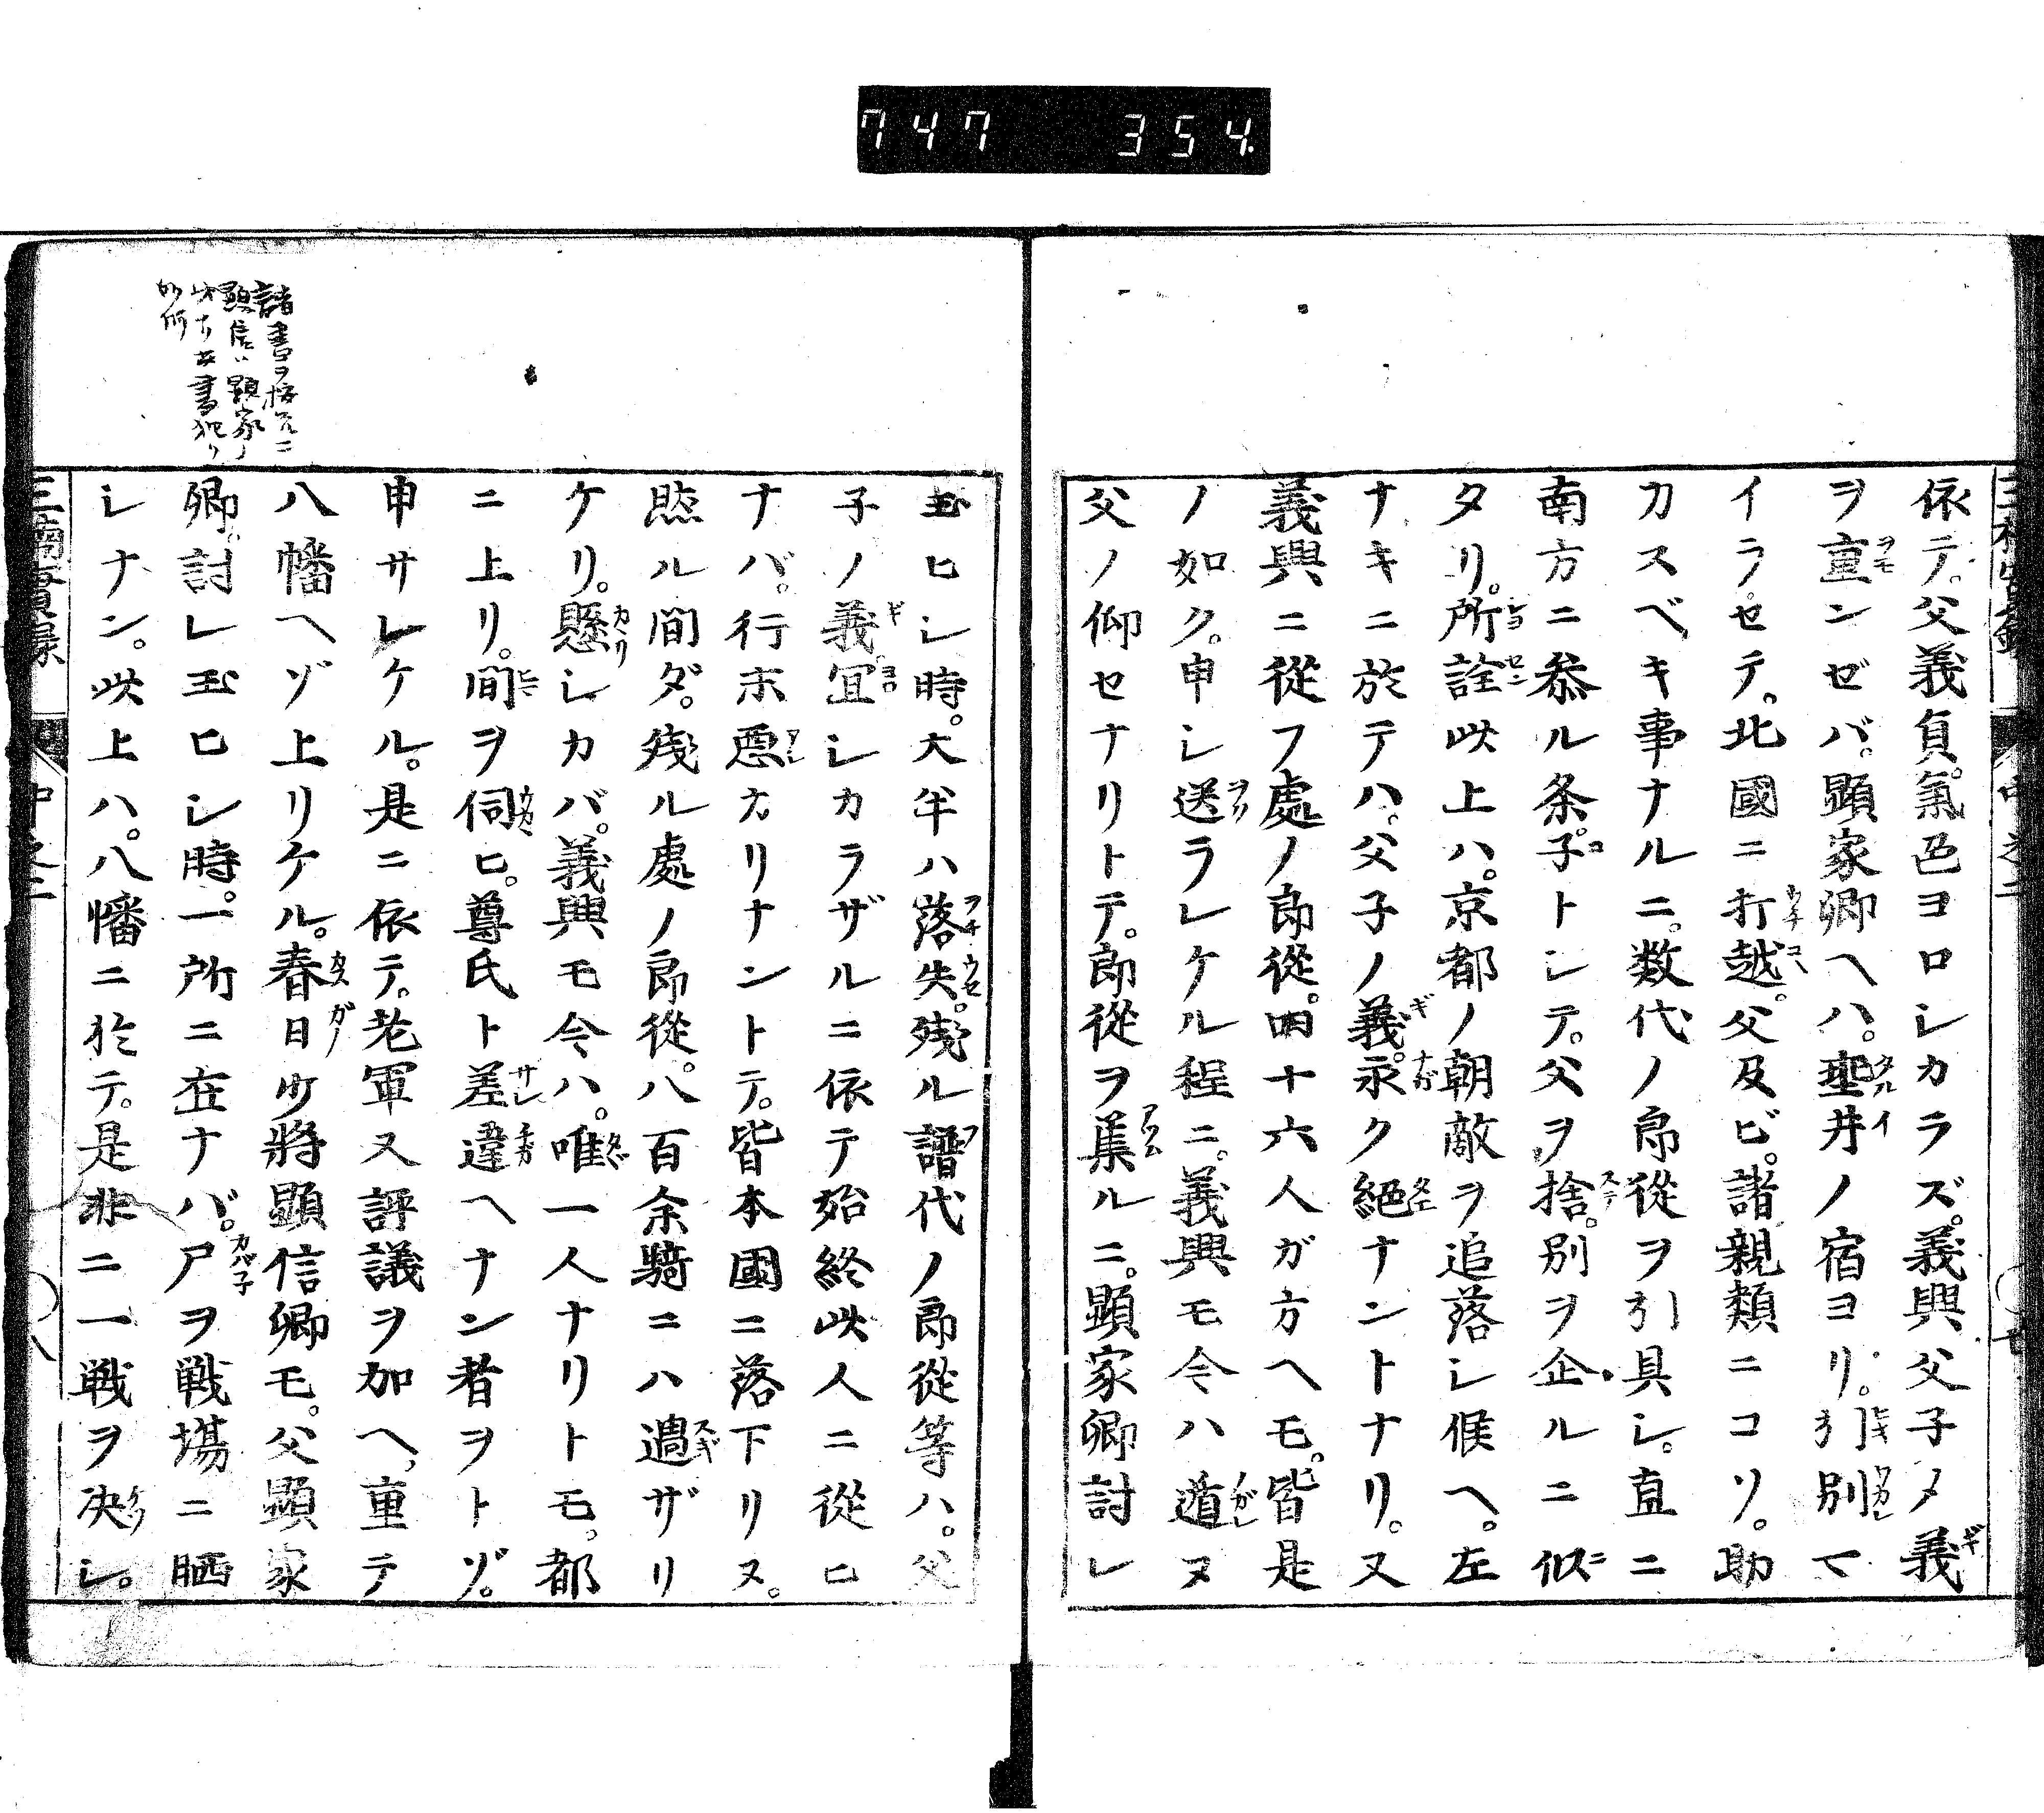 747 354
依テ。父義貞。氣色ヨロシカラズ。義興父子ノ義
ヲ重ンゼバ。顕家卿ヘハ。埀井ノ宿ヨリ。引別テ
イラセテ。北國ニ打越。父及ビ。諸親類ニコソ。助
カスベキ事ナルニ。数代ノ郎從ヲ引具シ。直ニ
南方ニ參ル条。子トシテ。父ヲ捨。別ヲ企ルニ似
タリ。所詮此上ハ。京都ノ朝敵ヲ追落シ候ヘ。左
ナキニ於テハ。父子ノ義。永ク絕ナントナリ。又
義興ニ從フ處ノ郎從。四十六人ガ方ヘモ。皆是
ノ如ク。申シ送ラレケル程ニ。義興モ今ハ遁ヌ
父ノ仰セナリトテ。郎從ヲ集ルニ。顕家卿討レ
玉ヒシ時。大半ハ落失。残ル譜代ノ郎從等ハ。父
子ノ義。宜シカラザルニ依テ始終此人ニ從ヒ
ナバ。行末悪カリナントテ。皆本國ニ落下リヌ。
然ル間ダ。残ル處ノ郎從。八百余騎ニハ過ザリ
ケリ。懸シカバ。義興モ今ハ。唯一人ナリトモ。都
ニ上リ。間ヲ伺ヒ。尊氏ト差違ヘナン者ヲトゾ。
申サレケル。是ニ依テ。老軍又評議ヲ加ヘ、重テ
八幡ヘゾ上リケル。春日少將顕信卿モ。父顕家
卿。討レ玉ヒシ時。一所ニ在ナバ。尸ヲ戦場ニ晒
シナン。此上ハ。八幡ニ於テ。是非ニ一戦ヲ决シ。
諸書ヲ按スルニ
顕信ハ顕家ノ
三楠實録
中之二